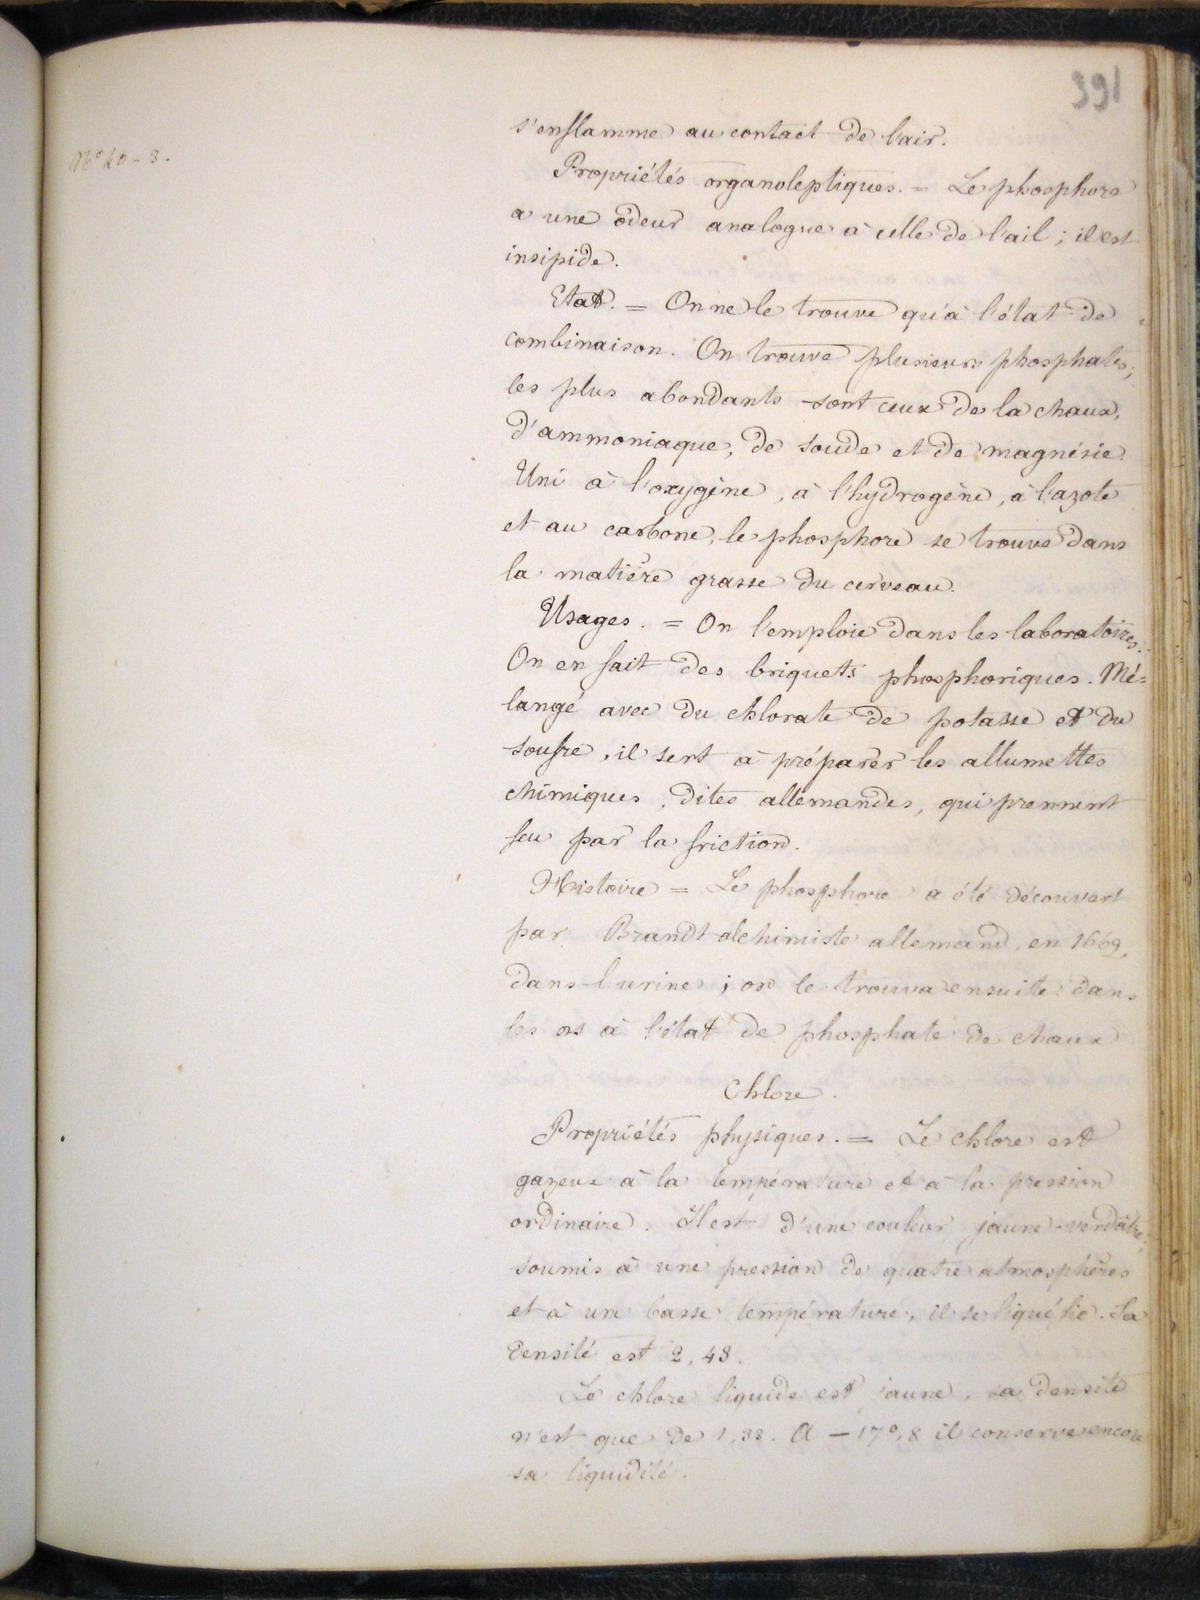 391
N° 20 - 3.
s'enflamme au contact de l'air.
Propriétés organoleptiques. = Le phosphore
a une odeur analogue à celle de l'ail ; il est
insipide.
Etat. = On ne le trouve qu'à l'état de
combinaison. On trouve plusieurs phosphates,
les plus abondants sont ceux de la chaux,
d'ammoniaque, de soude et de magnésie.
Uni à l'oxygène, à l'hydrogène, à l'azote
et au carbone, le phosphore se trouve dans
la matière grasse du cerveau.
Usages. = On l'emploie dans les laboratoires.
On en fait des briquets phosphoriques. Mé=
langé avec du chlorate de potasse et du
soufre, il sert à préparer les allumettes
chimiques, dites allemandes, qui prennent
feu par la friction.
Histoire = Le phosphore a été découvert
par Brandt alchimiste allemand, en 1669,
dans l'urine ; on le trouva ensuite dans
les os à l'état de phosphate de chaux
Chlore.
Propriétés physiques. = Le chlore est
gazeux à la température et à la pression
ordinaire. Il est d'une couleur jaune-verdâtre,
soumis à une pression de quatre atmosphères
et à une basse température, il se liquéfie. Sa
densité est 2,43.
Le chlore liquide est jaune, sa densité
n'est que de 1,33. A - 17°,8 il conserve encore
sa liquidité.